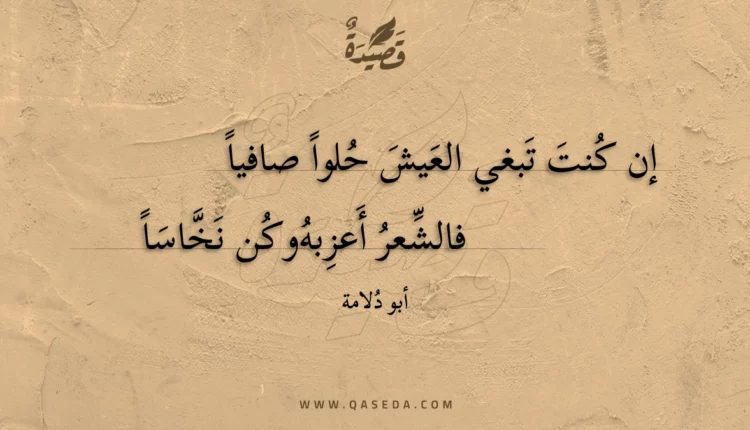 قَصِيدَةٌ
إن كُنتَ تَبغي العَيشَ حُلواً صافياً
فالشِّعرُ أَعزِبهُ وكُن نَخَّاسَاً
أبو دُلامة
WWW.QASEDA.COM